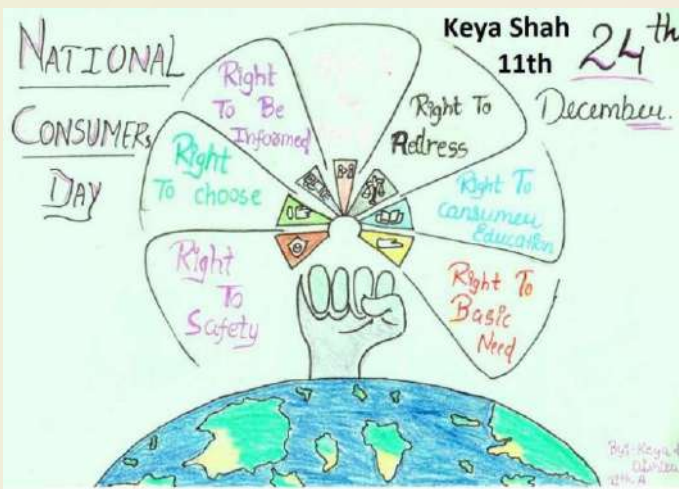 NATIONAL
CONSUMERS
DAY
Keya Shah
11th
24th
December.
Right
To Be
Informed
Right To
Redress
Right
To choose
Right To
Consumer
Education
Right
To
Safety
Right To
Basic
Need
By:- Keya